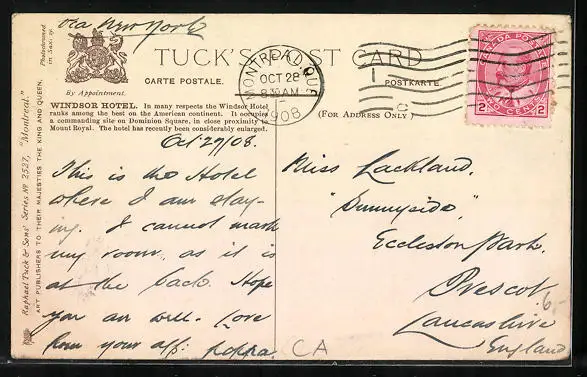 via New York
TUCK'S POST CARD
CARTE POSTALE.
POSTKARTE
By Appointment.
(FOR ADDRESS ONLY)
MONTREAL QUE
OCT 28
8 30 AM
1908
CANADA POSTAGE
2 2
TWO CENTS
WINDSOR HOTEL. In many respects the Windsor Hotel
ranks among the best on the American continent. It occupies
a commanding site on Dominion Square, in close proximity to
Mount Royal. The hotel has recently been considerably enlarged.
Raphael Tuck & Sons' Series No 2527, "Montreal."
ART PUBLISHERS TO THEIR MAJESTIES THE KING AND QUEEN.
Oct 27/08.
This is the Hotel
where I am stay-
ing. I cannot mark
my room, as it is
at the back. Hope
you are well. Love
from your aff: poppa.
Miss Lackland.
"Sunnyside"
Eccleston Park.
Prescot.
Lancashire
England
6,-
CA